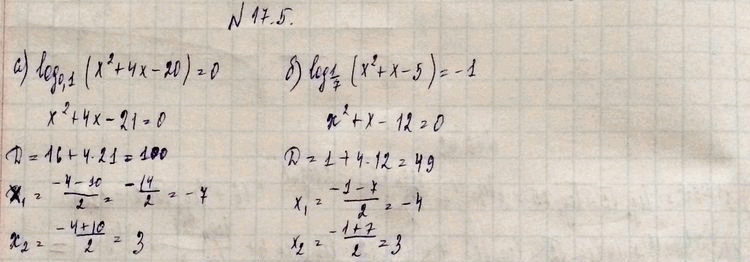 N 17.5.
а) log₀,₁ (x²+4x-20)=0
x²+4x-21=0
D=16+4·21=100
x₁= (-4-10)/2 = -14/2 = -7
x₂= (-4+10)/2 = 3
б) log₁/₇ (x²+x-5)=-1
x²+x-12=0
D=1+4·12=49
x₁= (-1-7)/2 = -4
x₂= (-1+7)/2 = 3